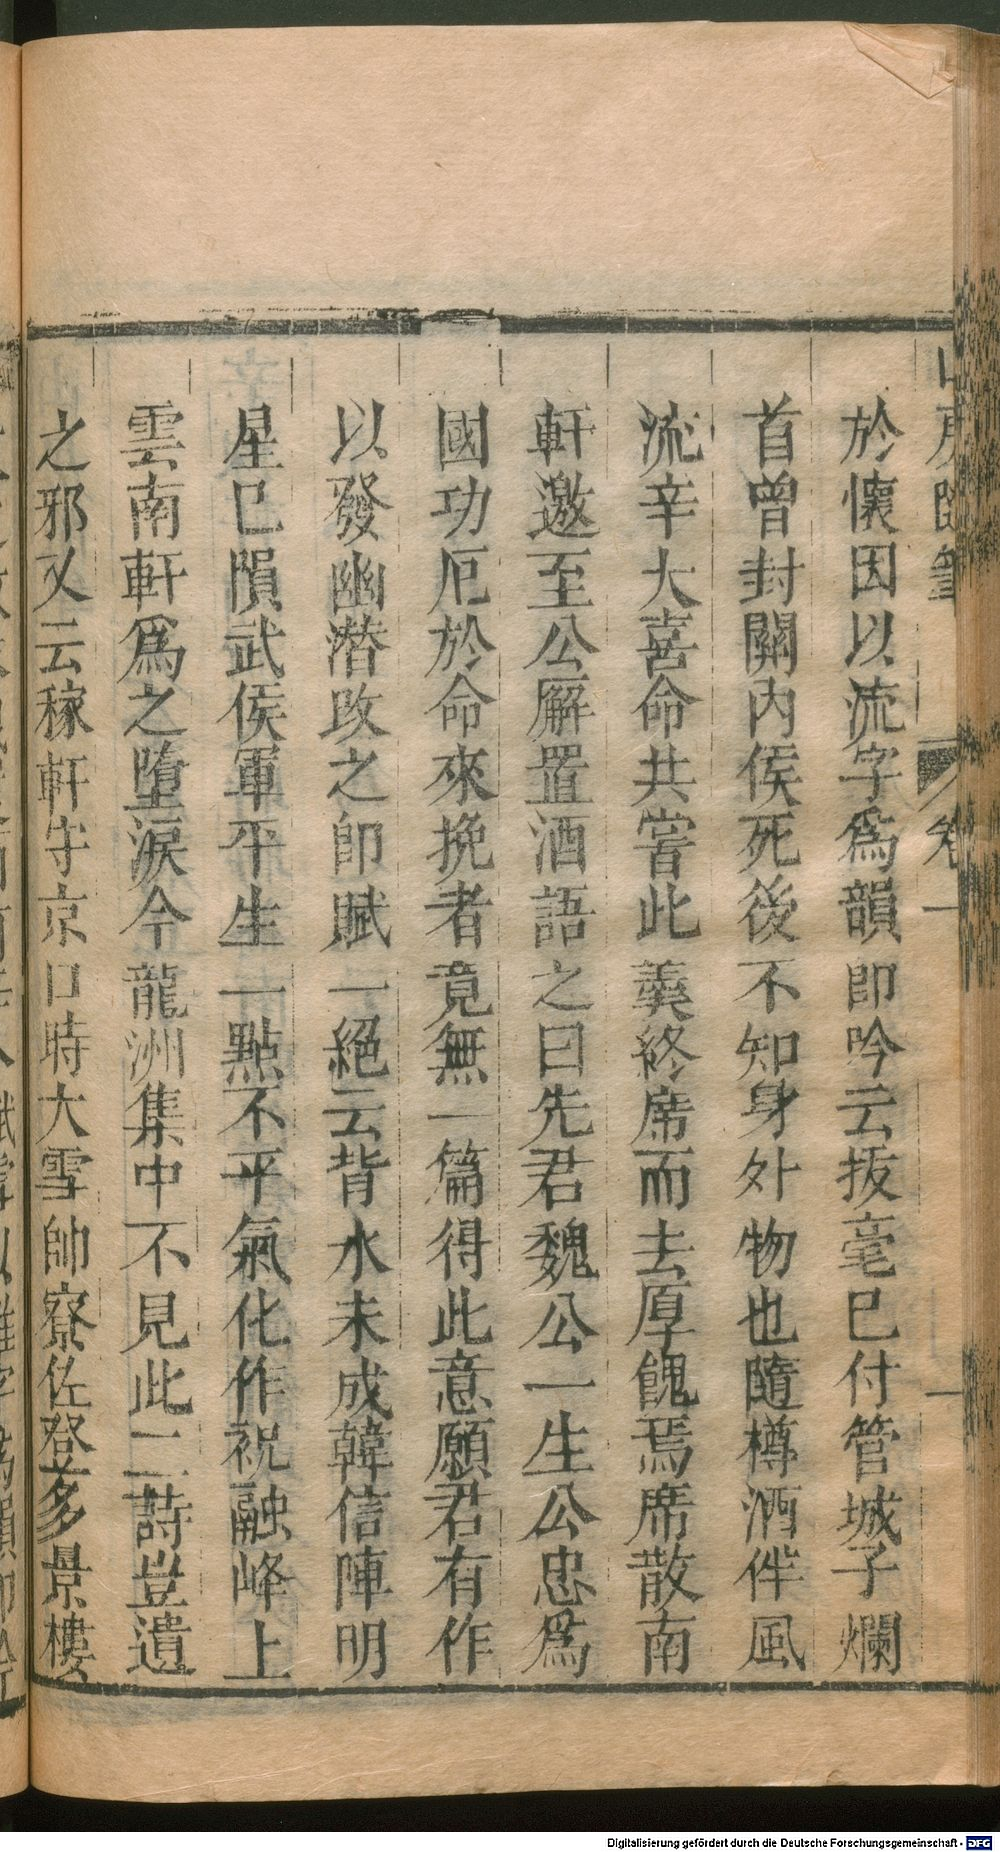 山房隨筆 卷一 一
於懷因以流字爲韻即吟云拔毫已付管城子爛
首曾封關內侯死後不知身外物也隨樽酒伴風
流辛大喜命共嘗此羹終席而去厚餽焉席散南
軒邀至公廨置酒語之曰先君魏公一生公忠爲
國功厄於命來挽者竟無一篇得此意願君有作
以發幽潛改之即賦一絕云背水未成韓信陣明
星巳隕武侯軍平生一點不平氣化作祝融峰上
雲南軒爲之墮淚今龍洲集中不見此二詩豈遺
之邪又云稼軒守京口時大雪帥寮佐登多景樓
Digitalisierung gefördert durch die Deutsche Forschungsgemeinschaft - DFG